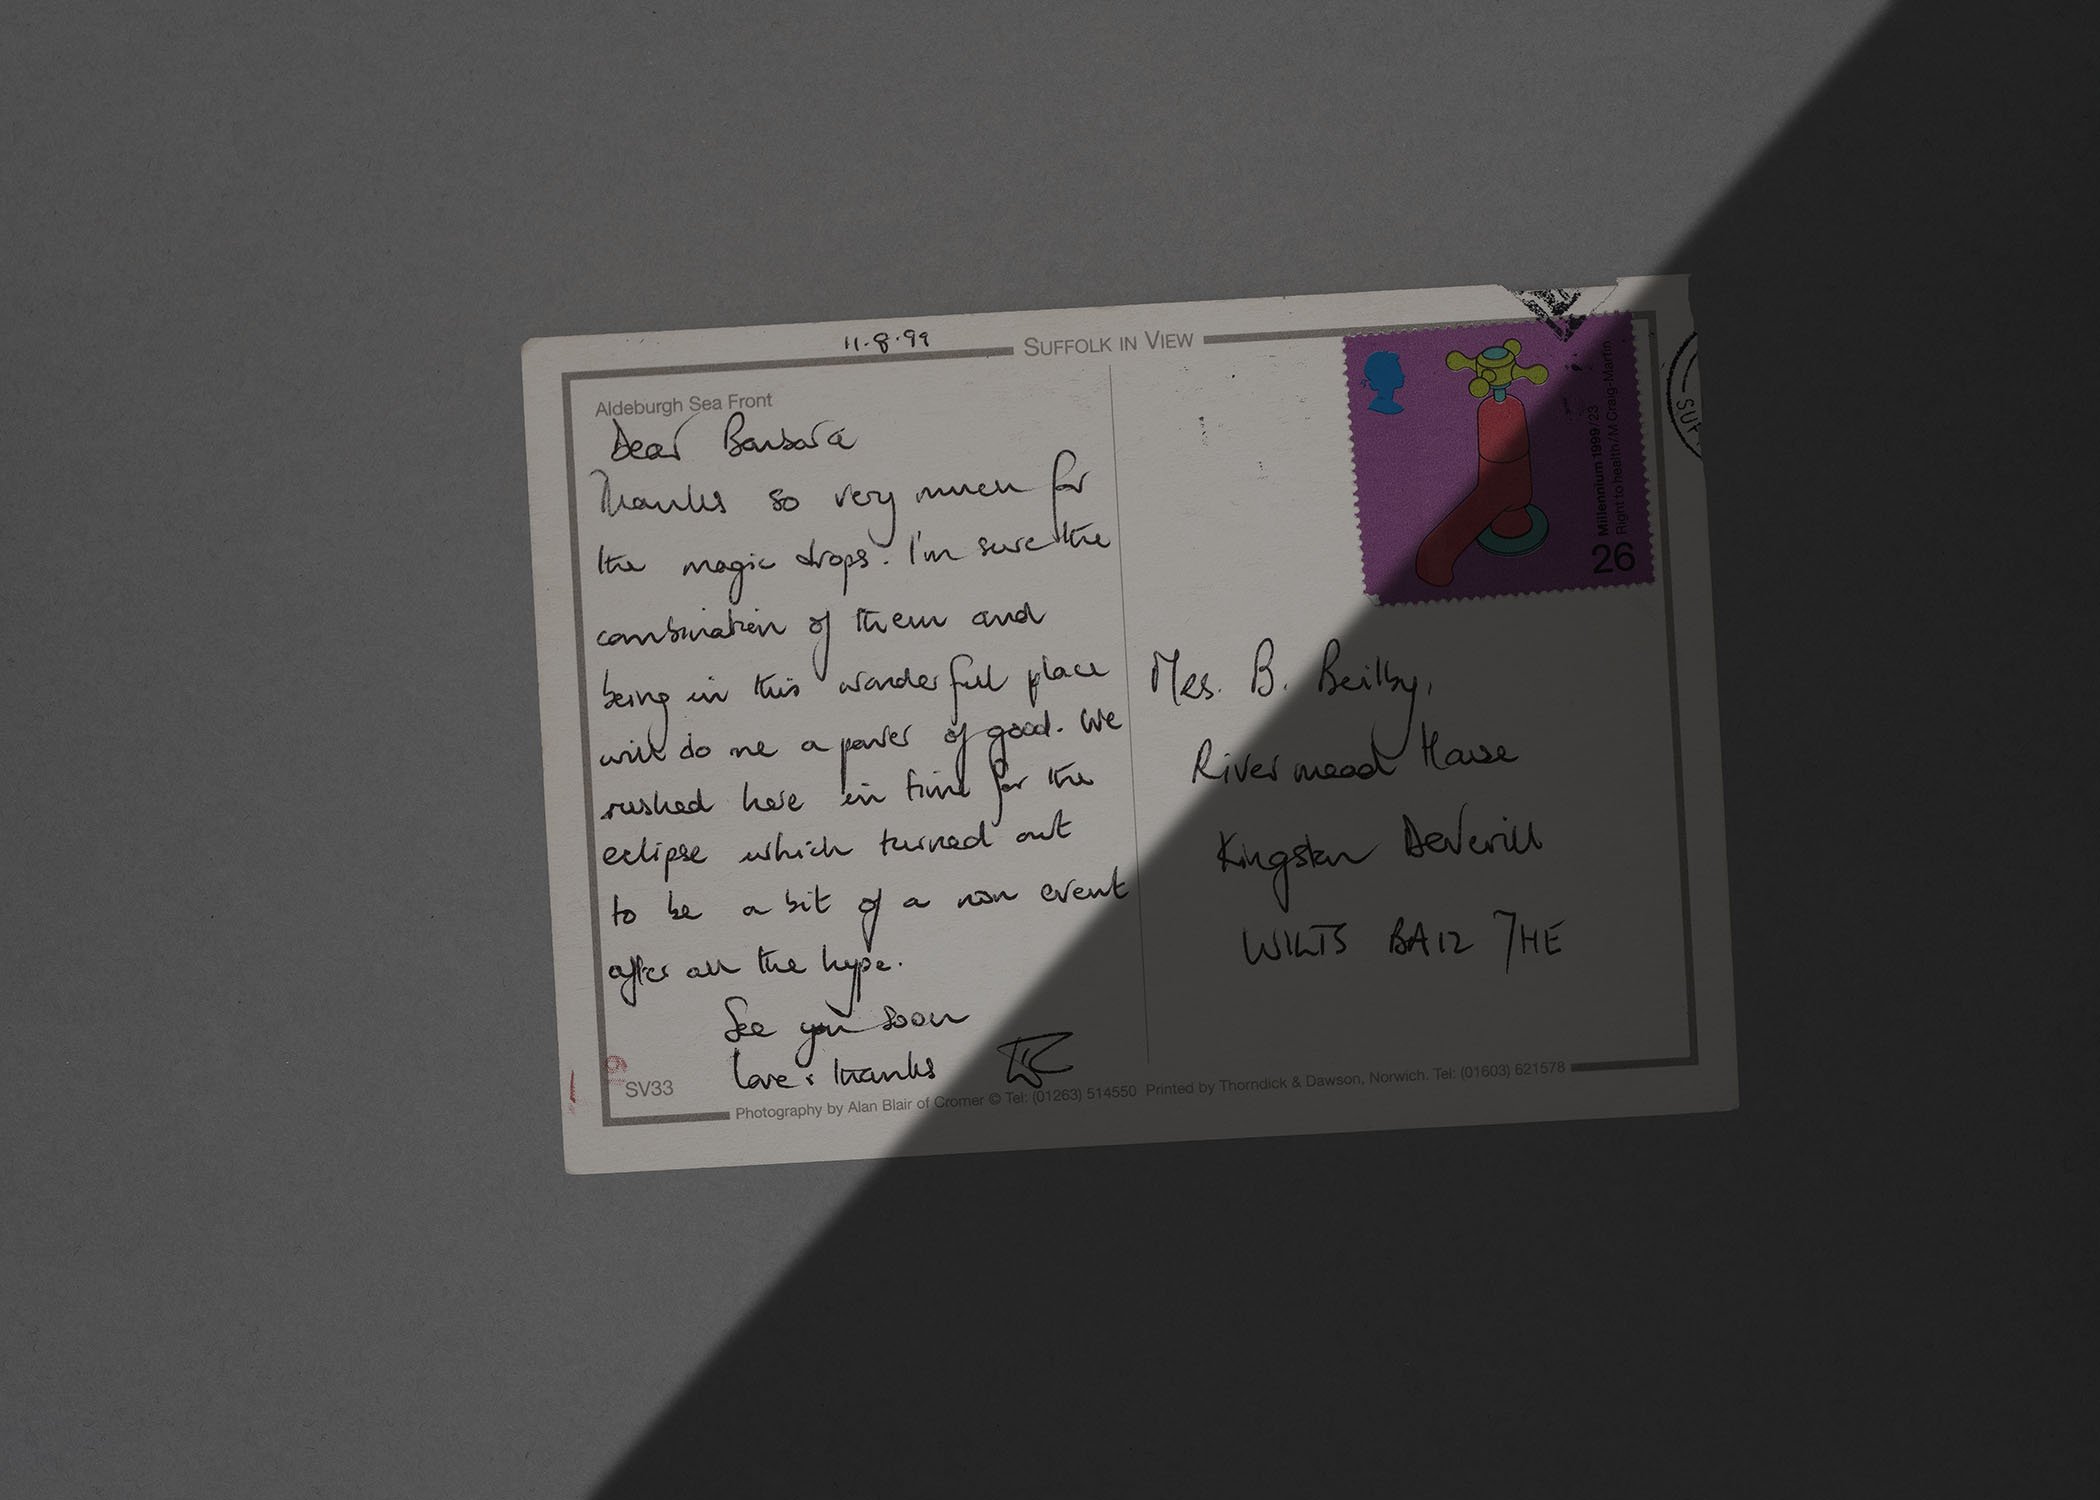 11·8·99
SUFFOLK IN VIEW
Aldeburgh Sea Front
Dear Barbara
Thanks so very much for
the magic drops. I'm sure the
combination of them and
being in this wonderful place
will do me a power of good. We
rushed here in time for the
eclipse which turned out
to be a bit of a non event
after all the hype.
See you soon
love & thanks
SV33
Photography by Alan Blair of Cromer © Tel: (01263) 514550 Printed by Thorndick & Dawson, Norwich. Tel: (01603) 621578
Millennium 1999/23
Right to health/M Craig-Martin
26
SUF
Mrs. B. Beilby,
Rivermead House
Kingston Deverill
WILTS BA12 7HE